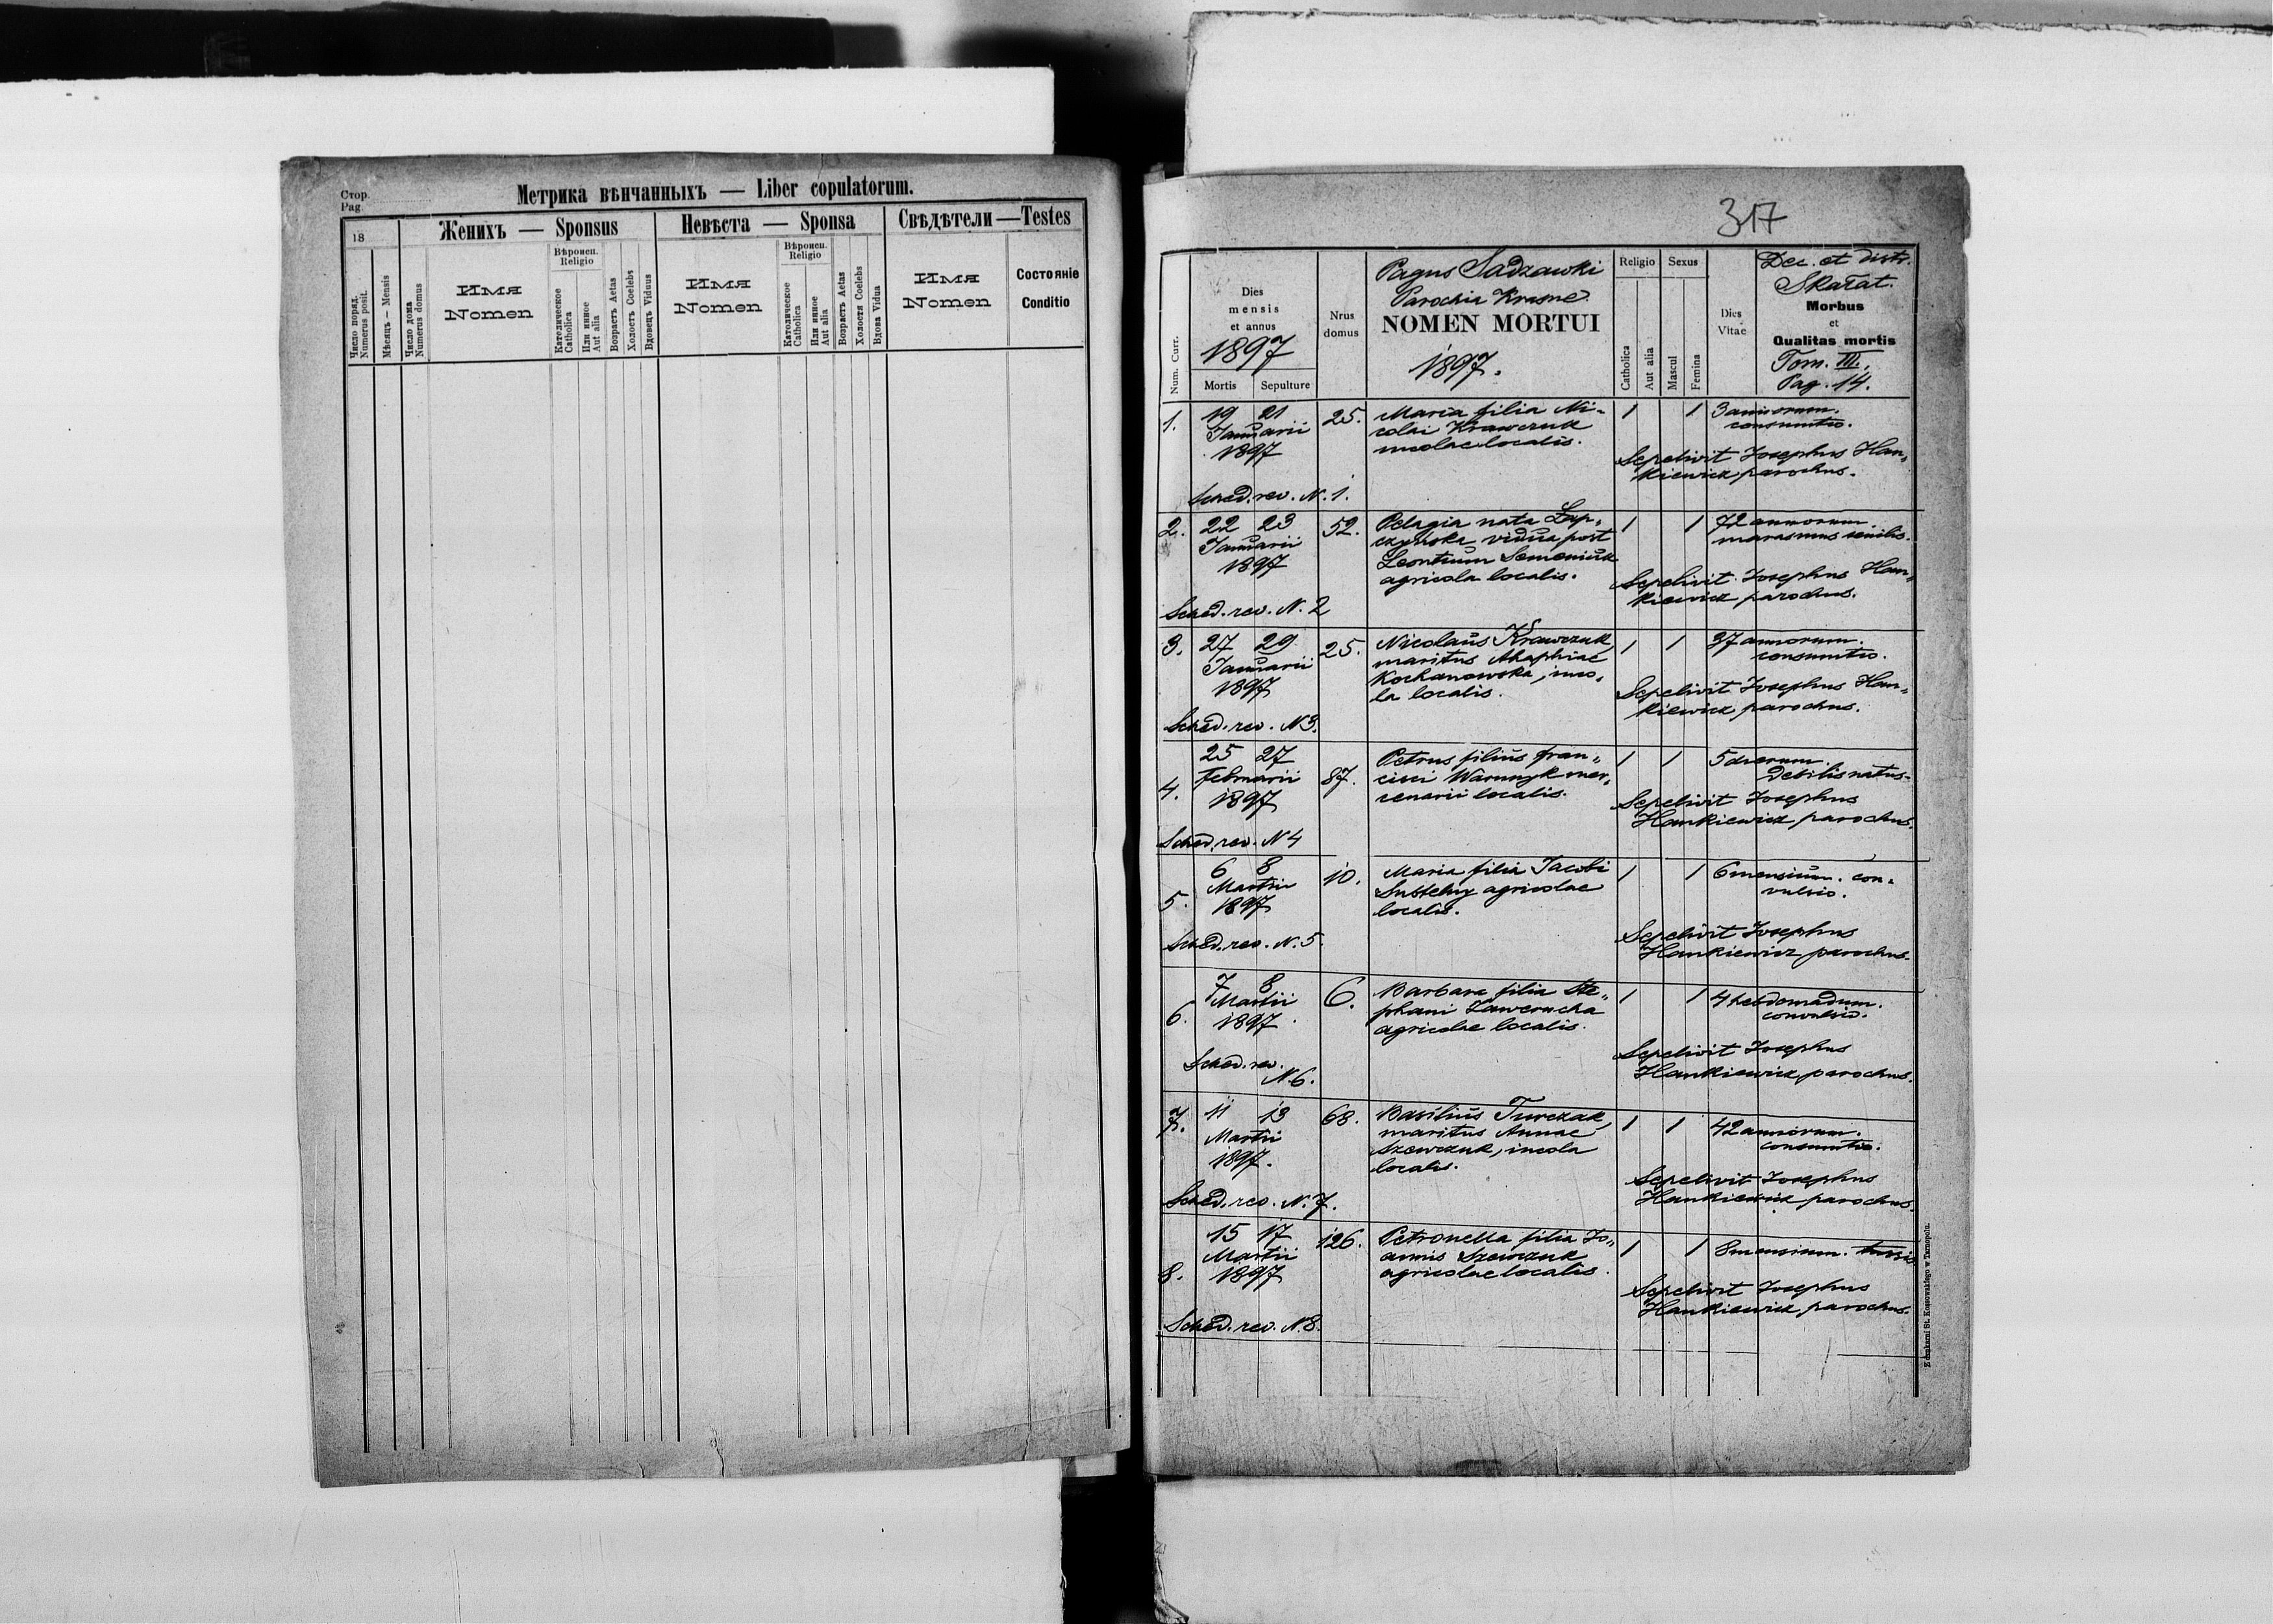 Стор.
Pag.
Метрика вѣнчанныхъ — Liber copulatorum.
18
Женихъ — Sponsus
Невѣста — Sponsa
Свѣдѣтели — Testes
Число поряд.
Numerus posit.
Мѣсяцъ — Mensis
Число дома
Numerus domus
Имя
Nomen
Вѣроисп.
Religio
Католическое
Catholica
Или инное
Aut alia
Возрастъ Aetas
Холостъ Coelebs
Вдовецъ Viduus
Имя
Nomen
Вѣроисп.
Religio
Католическое
Catholica
Или инное
Aut alia
Возрастъ Aetas
Холостя Coelebs
Вдова Vidua
Имя
Nomen
Состояніе
Conditio
317
Num. Curr.
Dies
mensis
et annus
1897
Mortis
Sepulture
Nrus
domus
Pagus Sadzawki
Parochia Krasne
NOMEN MORTUI
1897.
Religio
Catholica
Aut alia
Sexus
Mascul
Femina
Dies
Vitae
Dec. et distr.
Skałat.
Morbus
et
Qualitas mortis
Tom. III.
Pag. 14.
1. 19 21 25. Maria filia Ni- 1 1 3 annorum.
Januarii colai Krawczuk consumtio.
1897 incolae localis.
Sepelivit Josephus Han-
kiewicz parochus.
Sched. rev. N. 1.
2. 22 23 52. Pelagia nata 1 1 72 annorum.
Januarii vidua post marasmus senilis.
1897 Leontium Semeniuk
agricola localis.
Sepelivit Josephus Han-
kiewicz parochus.
Sched. rev. N. 2
3. 27 29 25. Nicolaus Krawczuk, 1 1 37 annorum.
Januarii maritus Ahaphiae consumtio.
1897 Kochanowska, inco-
la localis.
Sepelivit Josephus Han-
kiewicz parochus.
Sched. rev. N 3.
4. 25 27 87. Petrus filius Fran- 1 1 5 dierum.
Februarii cisci Warunyk mer- debilis natus.
1897 cenarii localis.
Sepelivit Josephus
Hankiewicz parochus.
Sched. rev. N 4
5. 6 8 10. Maria filia Jacobi 1 1 6 mensium. con-
Martii agricolae vulsio.
1897 localis.
Sepelivit Josephus
Hankiewicz parochus.
Sched. rev. N. 5.
6. 7 8 6. Barbara filia Ste- 1 1 4 hebdomadum.
Martii phani Zawerucha convulsio.
1897 agricolae localis.
Sepelivit Josephus
Hankiewicz parochus.
Sched. rev.
N. 6.
7. 11 13 68. Basilius Turczak, 1 1 42 annorum.
Martii maritus Annae consumtio.
1897. Szewczuk, incola
localis.
Sepelivit Josephus
Hankiewicz parochus.
Sched. rev. N. 7.
8. 15 17 126. Petronella filia Jo- 1 1 8 mensium. tussis
Martii annis Szewczuk
1897 agricolae localis.
Sepelivit Josephus
Hankiewicz parochus.
Sched. rev. N. 8.
Z drukarni St. Kossowskiego w Tarnopolu.